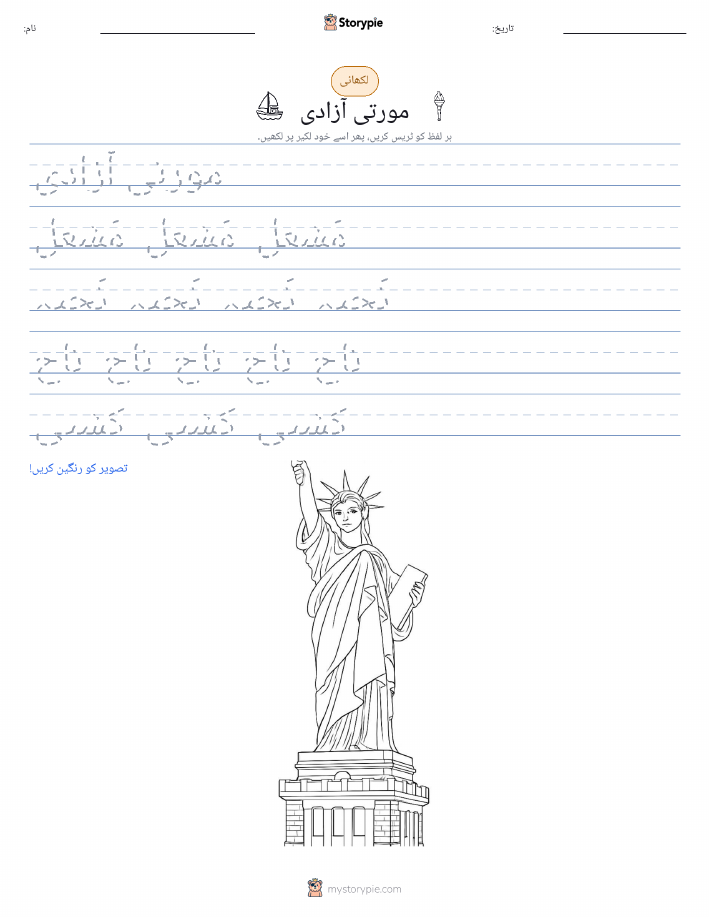 Storypie
نام:
تاریخ:
لکھائی
مورتی آزادی
ہر لفظ کو ٹریس کریں، پھر اسے خود لکیر پر لکھیں۔
مورتی آزادی
مَشعل مَشعل مَشعل
تاج تاج تاج تاج تاج
کَشتی کَشتی کَشتی
تصویر کو رنگین کریں!
mystorypie.com